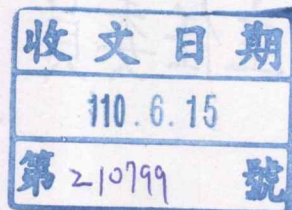 收文日期
110.6.15
第210799號